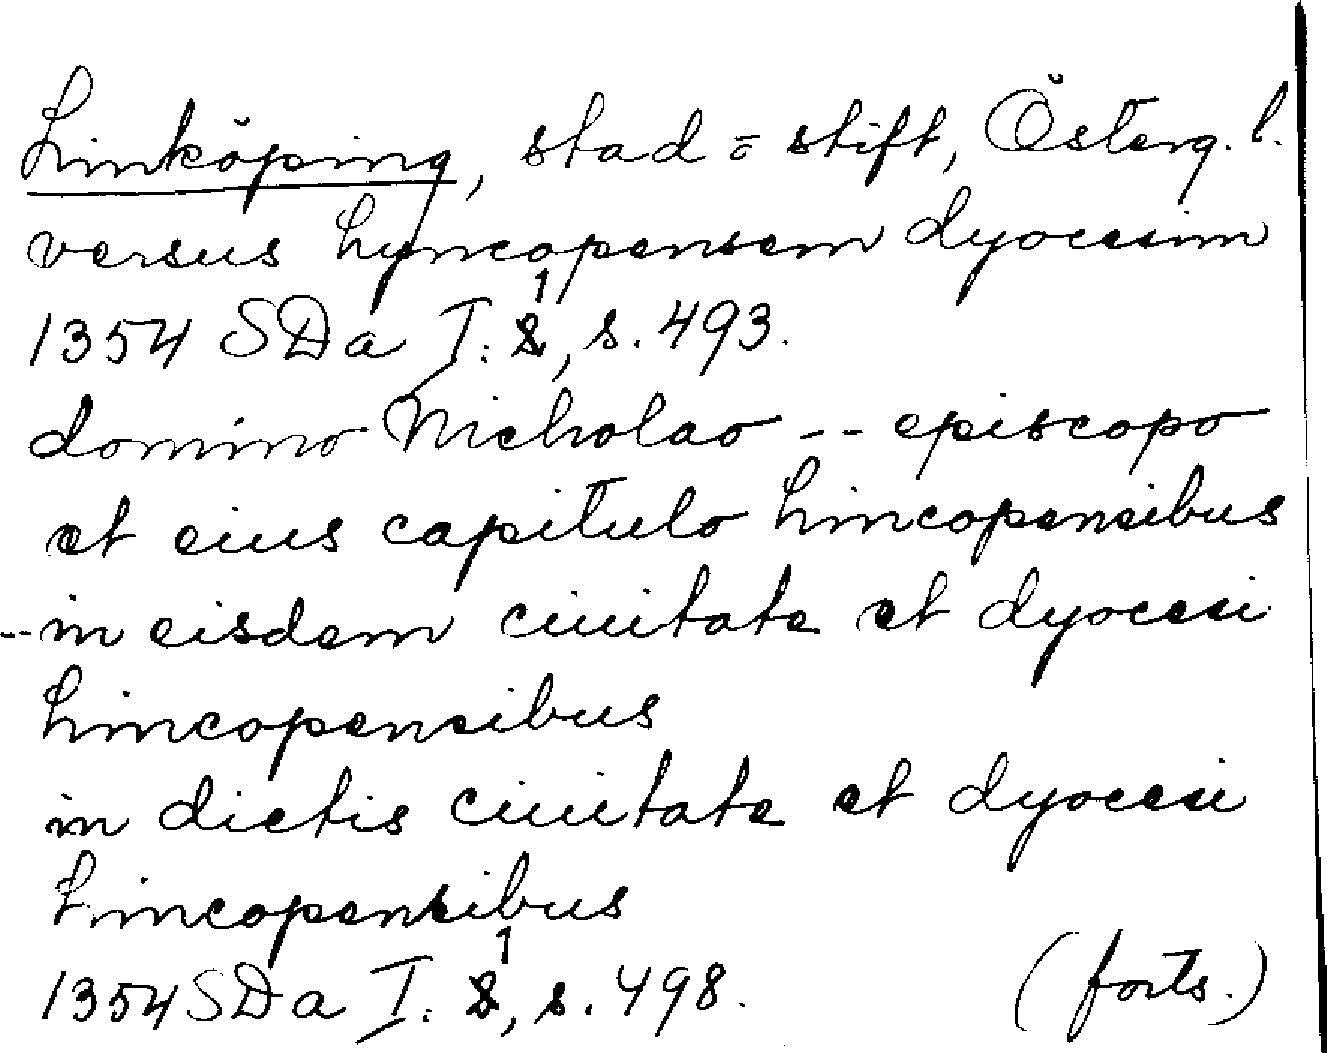 Linköping, stad o stift, Österg. l.
versus Lyncopensem dyocesim
1354 SDa I: 1, s. 493.
domino Nicholao -- episcopo
et eius capitulo Lincopensibus
-- in eisdem ciuitate et dyocesi
Lincopensibus
in dictis ciuitate et dyocesi
Lincopensibus
1354 SDa I: 1, s. 498. (forts.)